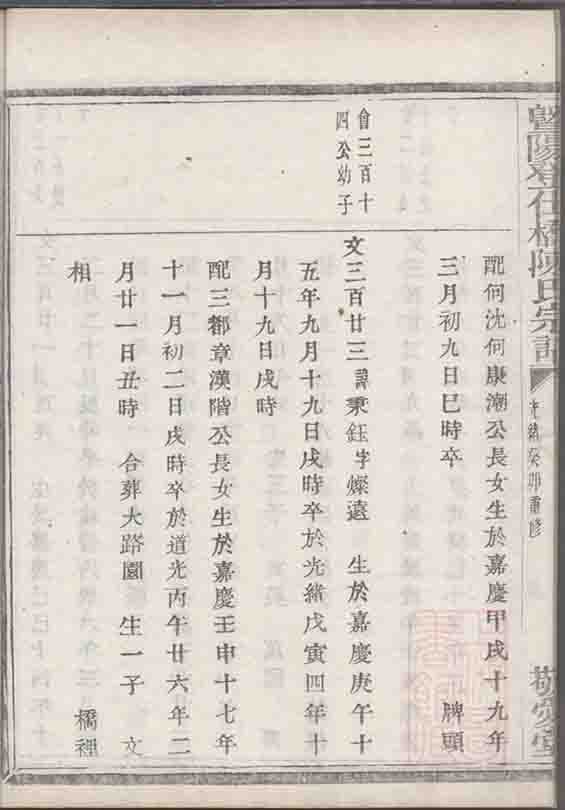 暨陽孝仁橋陳氏宗譜
光緒癸卯重修
敬愛堂
配何沈何康潮公長女生於嘉慶甲戌十九年
三月初九日巳時卒　牌頭
會三百十
四公幼子
文三百廿三諱秉鈺字燦遠　生於嘉慶庚午十
五年九月十九日戌時卒於光緒戊寅四年十
月十九日戌時
配三都章漢階公長女生於嘉慶壬申十七年
十一月初二日戌時卒於道光丙午廿六年二
月廿一日丑時　合葬大路園　生一子　文
相　橋裡